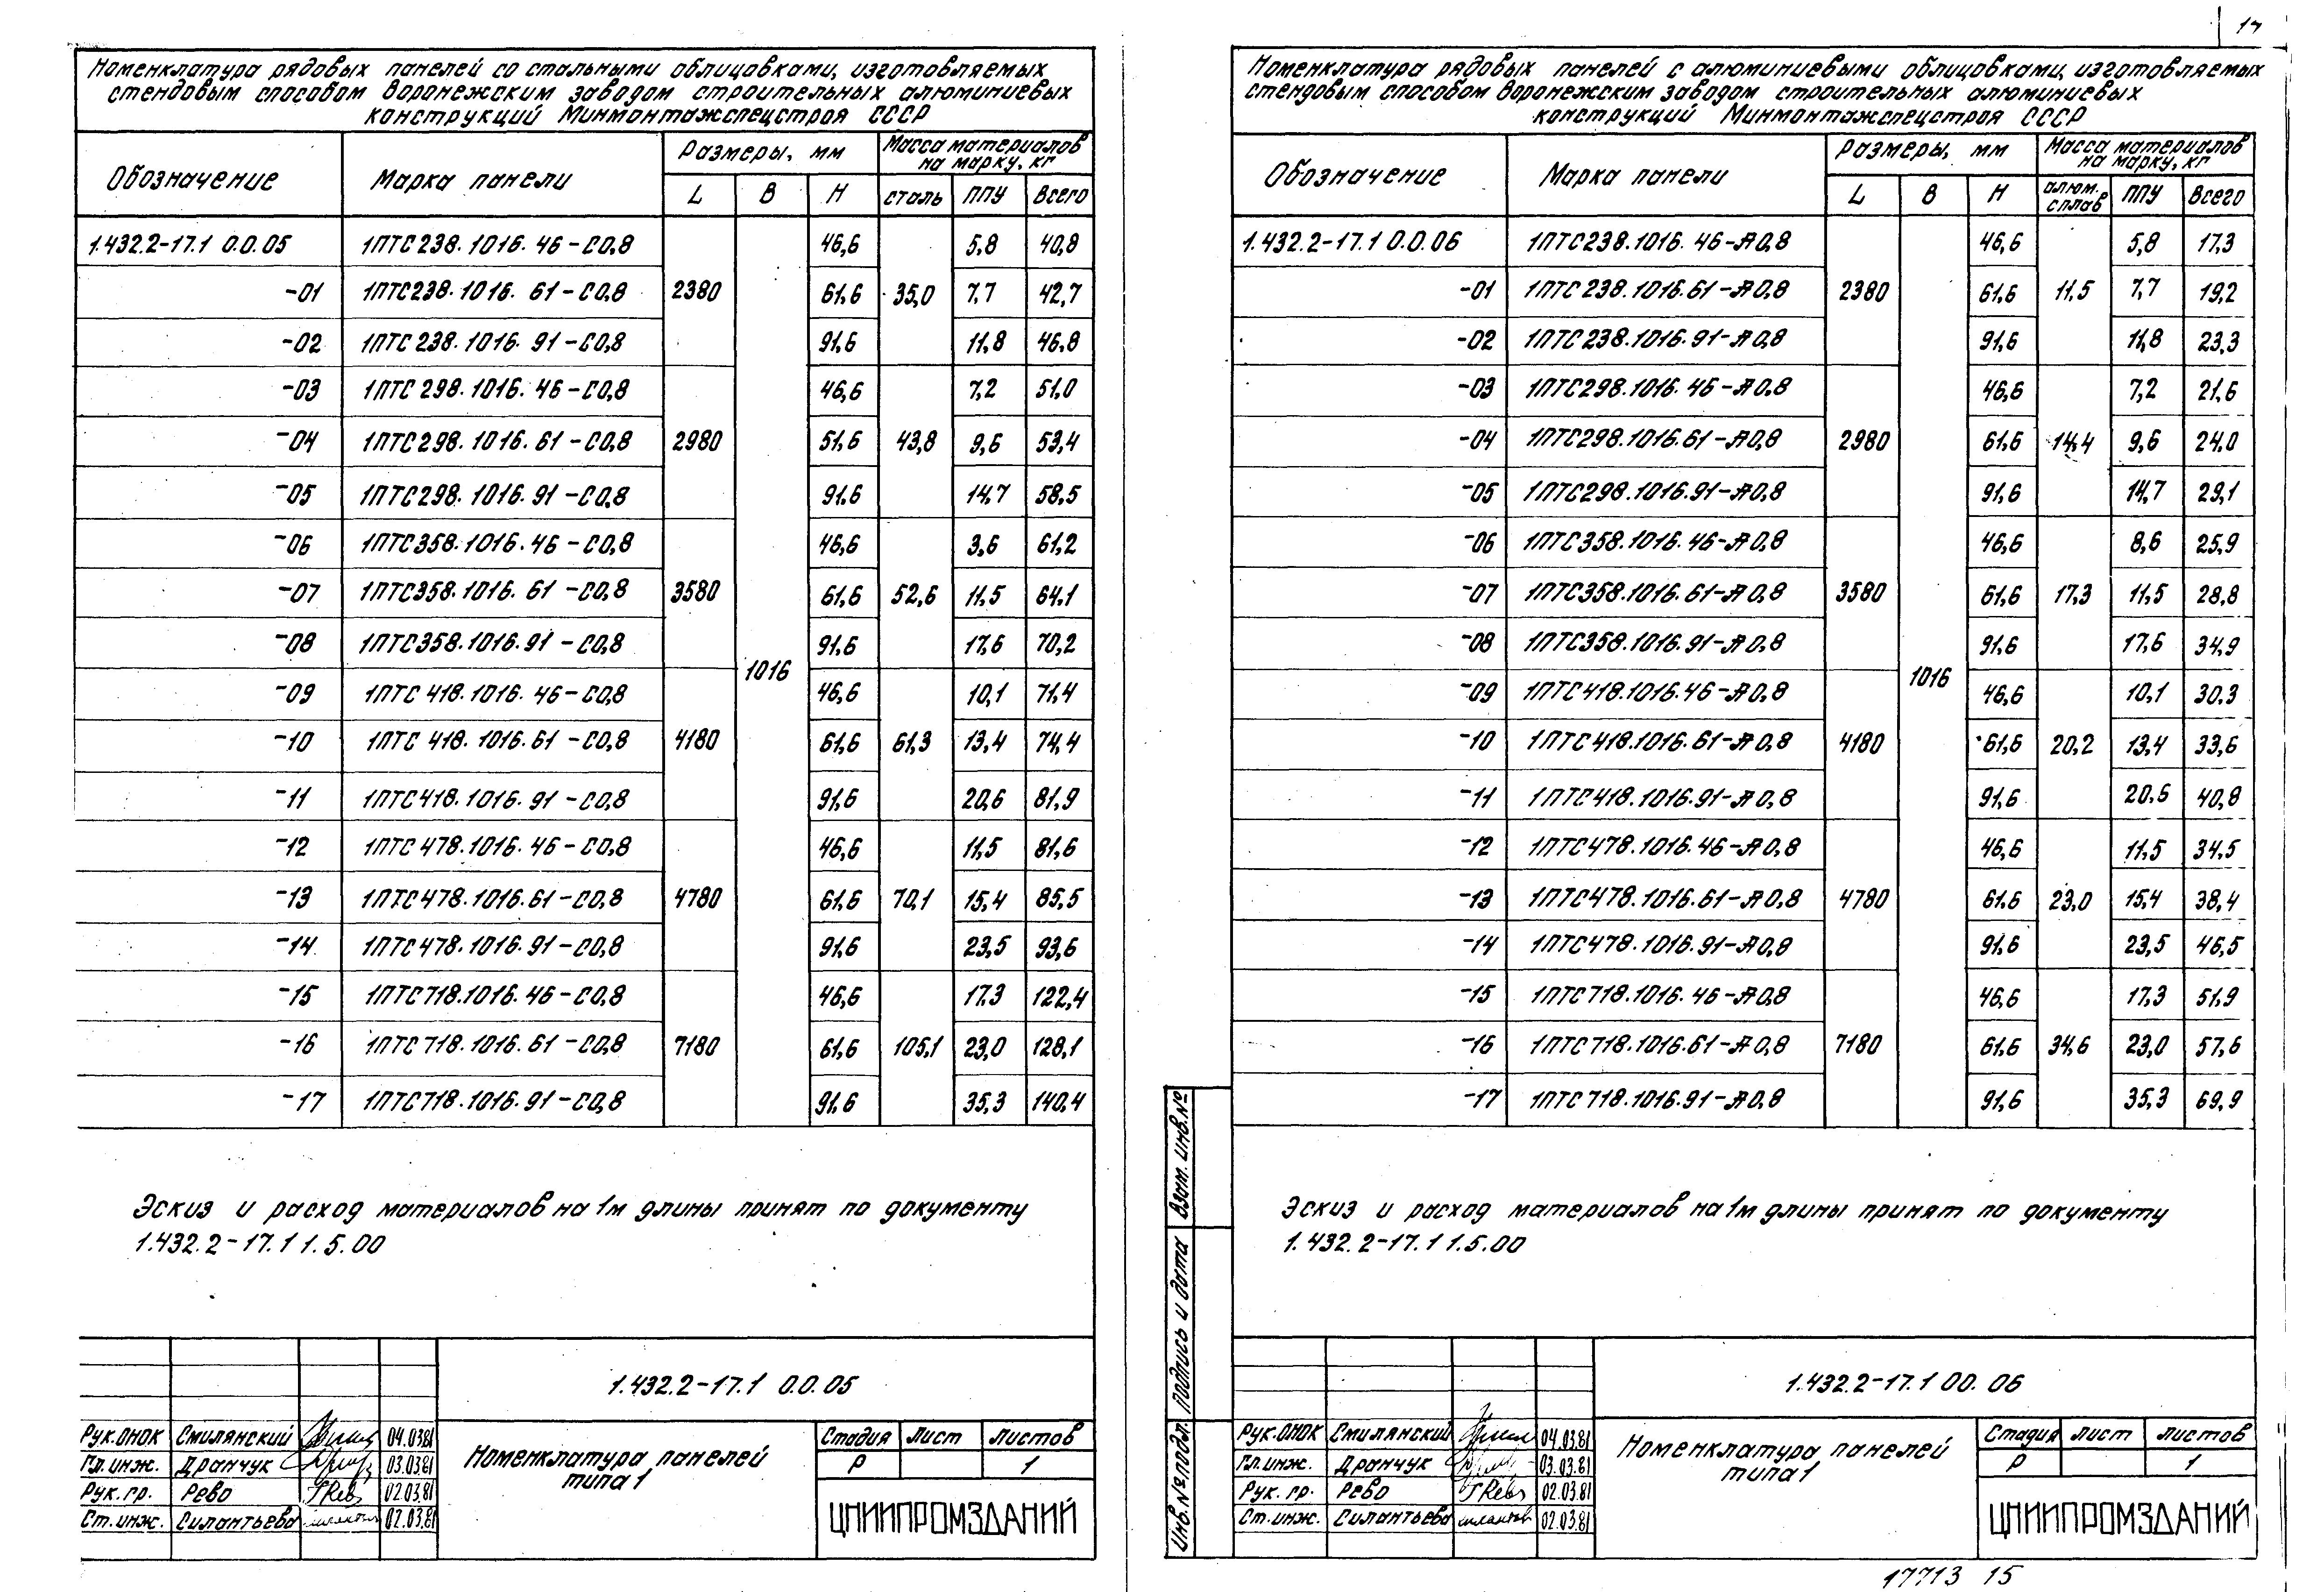 17
Номенклатура рядовых панелей со стальными облицовками, изготовляемых
стендовым способом Воронежским заводом строительных алюминиевых
конструкций Минмонтажспецстроя СССР
Обозначение Марка панели Размеры, мм Масса материалов на марку, кг
L В Н сталь ППУ Всего
1.432.2-17.1 0.0.05 1ПТС238.1016.46-С0,8 46,6 5,8 40,8
-01 1ПТС238.1016.61-С0,8 2380 61,6 35,0 7,7 42,7
-02 1ПТС238.1016.91-С0,8 91,6 11,8 46,8
-03 1ПТС298.1016.46-С0,8 46,6 7,2 51,0
-04 1ПТС298.1016.61-С0,8 2980 51,6 43,8 9,6 53,4
-05 1ПТС298.1016.91-С0,8 91,6 14,7 58,5
-06 1ПТС358.1016.46-С0,8 46,6 3,6 61,2
-07 1ПТС358.1016.61-С0,8 3580 61,6 52,6 11,5 64,1
-08 1ПТС358.1016.91-С0,8 91,6 17,6 70,2
1016
-09 1ПТС418.1016.46-С0,8 46,6 10,1 71,4
-10 1ПТС418.1016.61-С0,8 4180 61,6 61,3 13,4 74,4
-11 1ПТС418.1016.91-С0,8 91,6 20,6 81,9
-12 1ПТС478.1016.46-С0,8 46,6 11,5 81,6
-13 1ПТС478.1016.61-С0,8 4780 61,6 70,1 15,4 85,5
-14 1ПТС478.1016.91-С0,8 91,6 23,5 93,6
-15 1ПТС718.1016.46-С0,8 46,6 17,3 122,4
-16 1ПТС718.1016.61-С0,8 7180 61,6 105,1 23,0 128,1
-17 1ПТС718.1016.91-С0,8 91,6 35,3 140,4
Эскиз и расход материалов на 1м длины принят по документу
1.432.2-17.1 1.5.00
1.432.2-17.1 0.0.05
Рук.ОНОК Смилянский 04.03.81
Гл.инж. Дранчук 03.03.81
Рук.гр. Рево 02.03.81
Ст.инж. Силантьева 02.03.81
Номенклатура панелей
типа 1
Стадия Лист Листов
Р 1
ЦНИИПРОМЗДАНИЙ
Номенклатура рядовых панелей с алюминиевыми облицовками, изготовляемых
стендовым способом Воронежским заводом строительных алюминиевых
конструкций Минмонтажспецстроя СССР
Обозначение Марка панели Размеры, мм Масса материалов на марку, кг
L В Н алюм. сплав ППУ Всего
1.432.2-17.1 0.0.06 1ПТС238.1016.46-А0,8 46,6 5,8 17,3
-01 1ПТС238.1016.61-А0,8 2380 61,6 11,5 7,7 19,2
-02 1ПТС238.1016.91-А0,8 91,6 11,8 23,3
-03 1ПТС298.1016.46-А0,8 46,6 7,2 21,6
-04 1ПТС298.1016.61-А0,8 2980 61,6 14,4 9,6 24,0
-05 1ПТС298.1016.91-А0,8 91,6 14,7 29,1
-06 1ПТС358.1016.46-А0,8 46,6 8,6 25,9
-07 1ПТС358.1016.61-А0,8 3580 61,6 17,3 11,5 28,8
-08 1ПТС358.1016.91-А0,8 91,6 17,6 34,9
1016
-09 1ПТС418.1016.46-А0,8 46,6 10,1 30,3
-10 1ПТС418.1016.61-А0,8 4180 61,6 20,2 13,4 33,6
-11 1ПТС418.1016.91-А0,8 91,6 20,6 40,8
-12 1ПТС478.1016.46-А0,8 46,6 11,5 34,5
-13 1ПТС478.1016.61-А0,8 4780 61,6 23,0 15,4 38,4
-14 1ПТС478.1016.91-А0,8 91,6 23,5 46,5
-15 1ПТС718.1016.46-А0,8 46,6 17,3 51,9
-16 1ПТС718.1016.61-А0,8 7180 61,6 34,6 23,0 57,6
-17 1ПТС718.1016.91-А0,8 91,6 35,3 69,9
Эскиз и расход материалов на 1м длины принят по документу
1.432.2-17.1 1.5.00
Взам. инв.№
Подпись и дата
Инв.№подл.
1.432.2-17.1 00.06
Рук.ОНОК Смилянский 04.03.81
Гл.инж. Дранчук 03.03.81
Рук.гр. Рево 02.03.81
Ст.инж. Силантьева 02.03.81
Номенклатура панелей
типа 1
Стадия Лист Листов
Р 1
ЦНИИПРОМЗДАНИЙ
17713 15